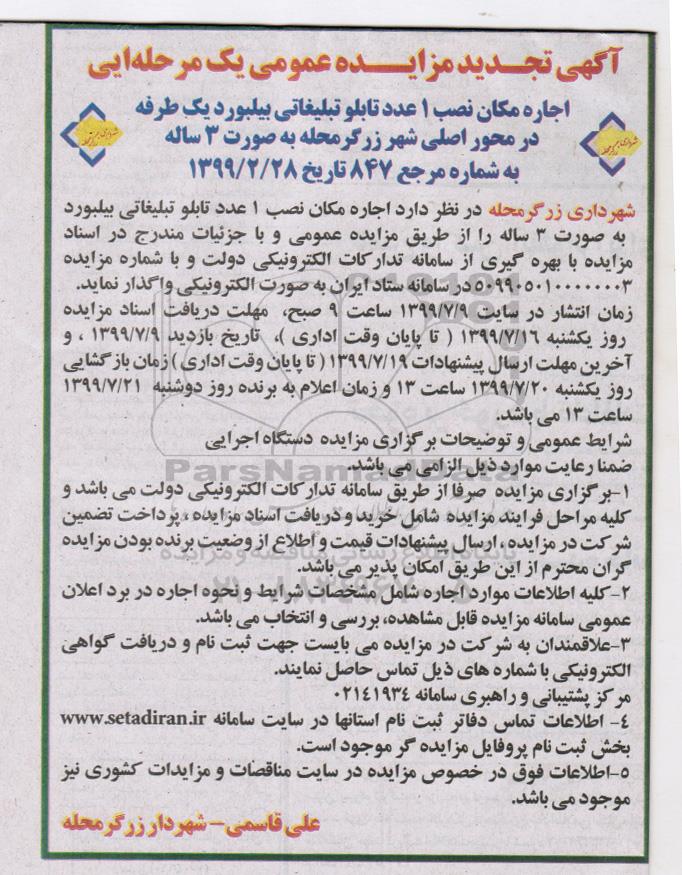 آگهی تجدید مزایده عمومی یک مرحله‌ایی
اجاره مکان نصب ۱ عدد تابلو تبلیغاتی بیلبورد یک طرفه
در محور اصلی شهر زرگرمحله به صورت ۳ ساله
به شماره مرجع ۸۴۷ تاریخ ۱۳۹۹/۲/۲۸
شهرداری زرگرمحله در نظر دارد اجاره مکان نصب ۱ عدد تابلو تبلیغاتی بیلبورد
به صورت ۳ ساله را از طریق مزایده عمومی و با جزئیات مندرج در اسناد
مزایده با بهره گیری از سامانه تدارکات الکترونیکی دولت و با شماره مزایده
۵۰۹۹۰۵۰۱۰۰۰۰۰۰۰۳ در سامانه ستاد ایران به صورت الکترونیکی واگذار نماید.
زمان انتشار در سایت ۱۳۹۹/۷/۹ ساعت ۹ صبح، مهلت دریافت اسناد مزایده
روز یکشنبه ۱۳۹۹/۷/۱۶ ( تا پایان وقت اداری )، تاریخ بازدید ۱۳۹۹/۷/۹ ، و
آخرین مهلت ارسال پیشنهادات ۱۳۹۹/۷/۱۹ ( تا پایان وقت اداری ) زمان بازگشایی
روز یکشنبه ۱۳۹۹/۷/۲۰ ساعت ۱۳ و زمان اعلام به برنده روز دوشنبه ۱۳۹۹/۷/۲۱
ساعت ۱۳ می باشد.
شرایط عمومی و توضیحات برگزاری مزایده دستگاه اجرایی
ضمنا رعایت موارد ذیل الزامی می باشد.
۱-برگزاری مزایده صرفا از طریق سامانه تدارکات الکترونیکی دولت می باشد و
کلیه مراحل فرایند مزایده شامل خرید و دریافت اسناد مزایده ، پرداخت تضمین
شرکت در مزایده ، ارسال پیشنهادات قیمت و اطلاع از وضعیت برنده بودن مزایده
گران محترم از این طریق امکان پذیر می باشد.
۲-کلیه اطلاعات موارد اجاره شامل مشخصات شرایط و نحوه اجاره در برد اعلان
عمومی سامانه مزایده قابل مشاهده، بررسی و انتخاب می باشد.
۳-علاقمندان به شرکت در مزایده می بایست جهت ثبت نام و دریافت گواهی
الکترونیکی با شماره های ذیل تماس حاصل نمایند.
مرکز پشتیبانی و راهبری سامانه ۰۲۱۴۱۹۳۴
۴- اطلاعات تماس دفاتر ثبت نام استانها در سایت سامانه www.setadiran.ir
بخش ثبت نام پروفایل مزایده گر موجود است.
۵-اطلاعات فوق در خصوص مزایده در سایت مناقصات و مزایدات کشوری نیز
موجود می باشد.
علی قاسمی- شهردار زرگرمحله
ParsNamadData
پایگاه اطلاع رسانی مناقصه و مزایده